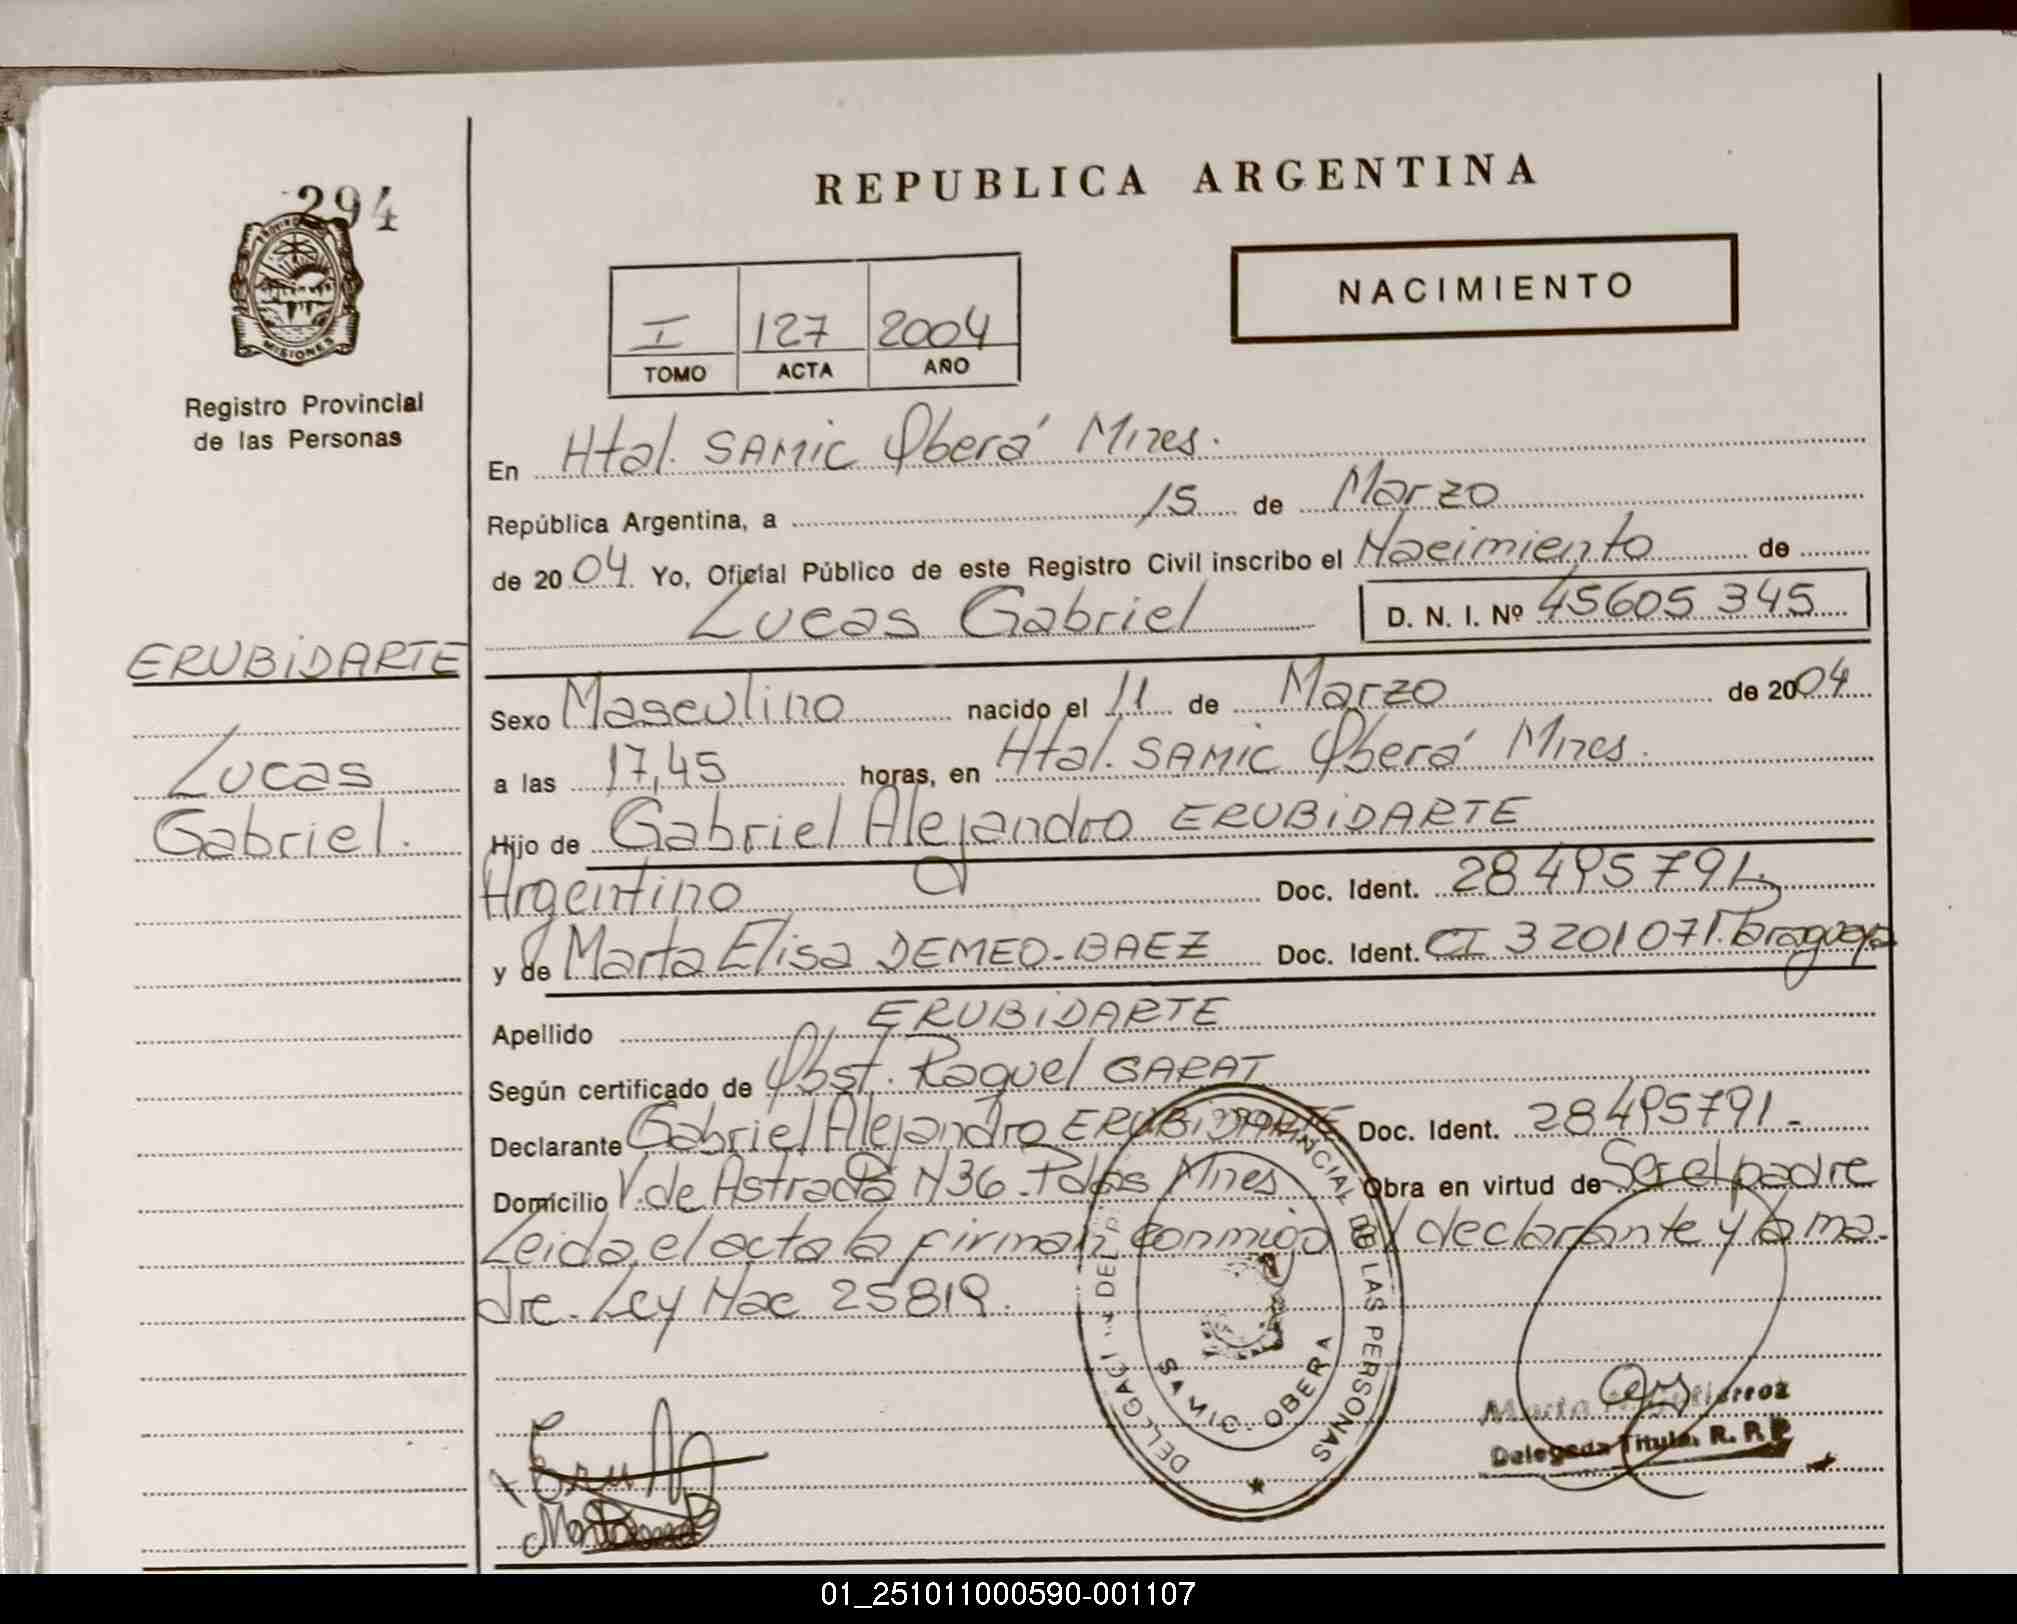 294
MISIONES
Registro Provincial
de las Personas
REPUBLICA ARGENTINA
NACIMIENTO
I 127 2004
TOMO ACTA AÑO
En Htal. SAMIC Oberá Mnes.
República Argentina, a 15 de Marzo
de 2004. Yo, Oficial Público de este Registro Civil inscribo el Nacimiento de
Lucas Gabriel D. N. I. Nº 45605345
ERUBIDARTE
Lucas
Gabriel.
Sexo Masculino nacido el 11 de Marzo de 2004
a las 17,45 horas, en Htal. SAMIC Oberá Mnes.
Hijo de Gabriel Alejandro ERUBIDARTE
Argentino Doc. Ident. 28495791
y de Marta Elisa DEMEO-BAEZ Doc. Ident. CI 3201071. Paraguaya
Apellido ERUBIDARTE
Según certificado de Obst. Raquel GARAT
Declarante Gabriel Alejandro ERUBIDARTE Doc. Ident. 28495791.-
Domicilio V. de Astrada N36 Pdas Mnes Obra en virtud de Ser el padre
Leida el acta la firman conmigo el declarante y la ma-
dre. Ley Nac 25819.
DE LAS PERSONAS
SAMIC OBERA
Gutierrez
Delegada Titular R. P. P.
01_251011000590-001107